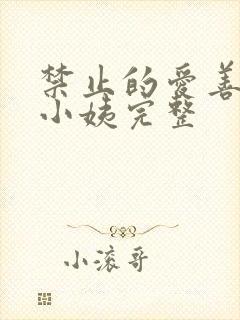 禁止的爱善
小姨完整
小滚哥